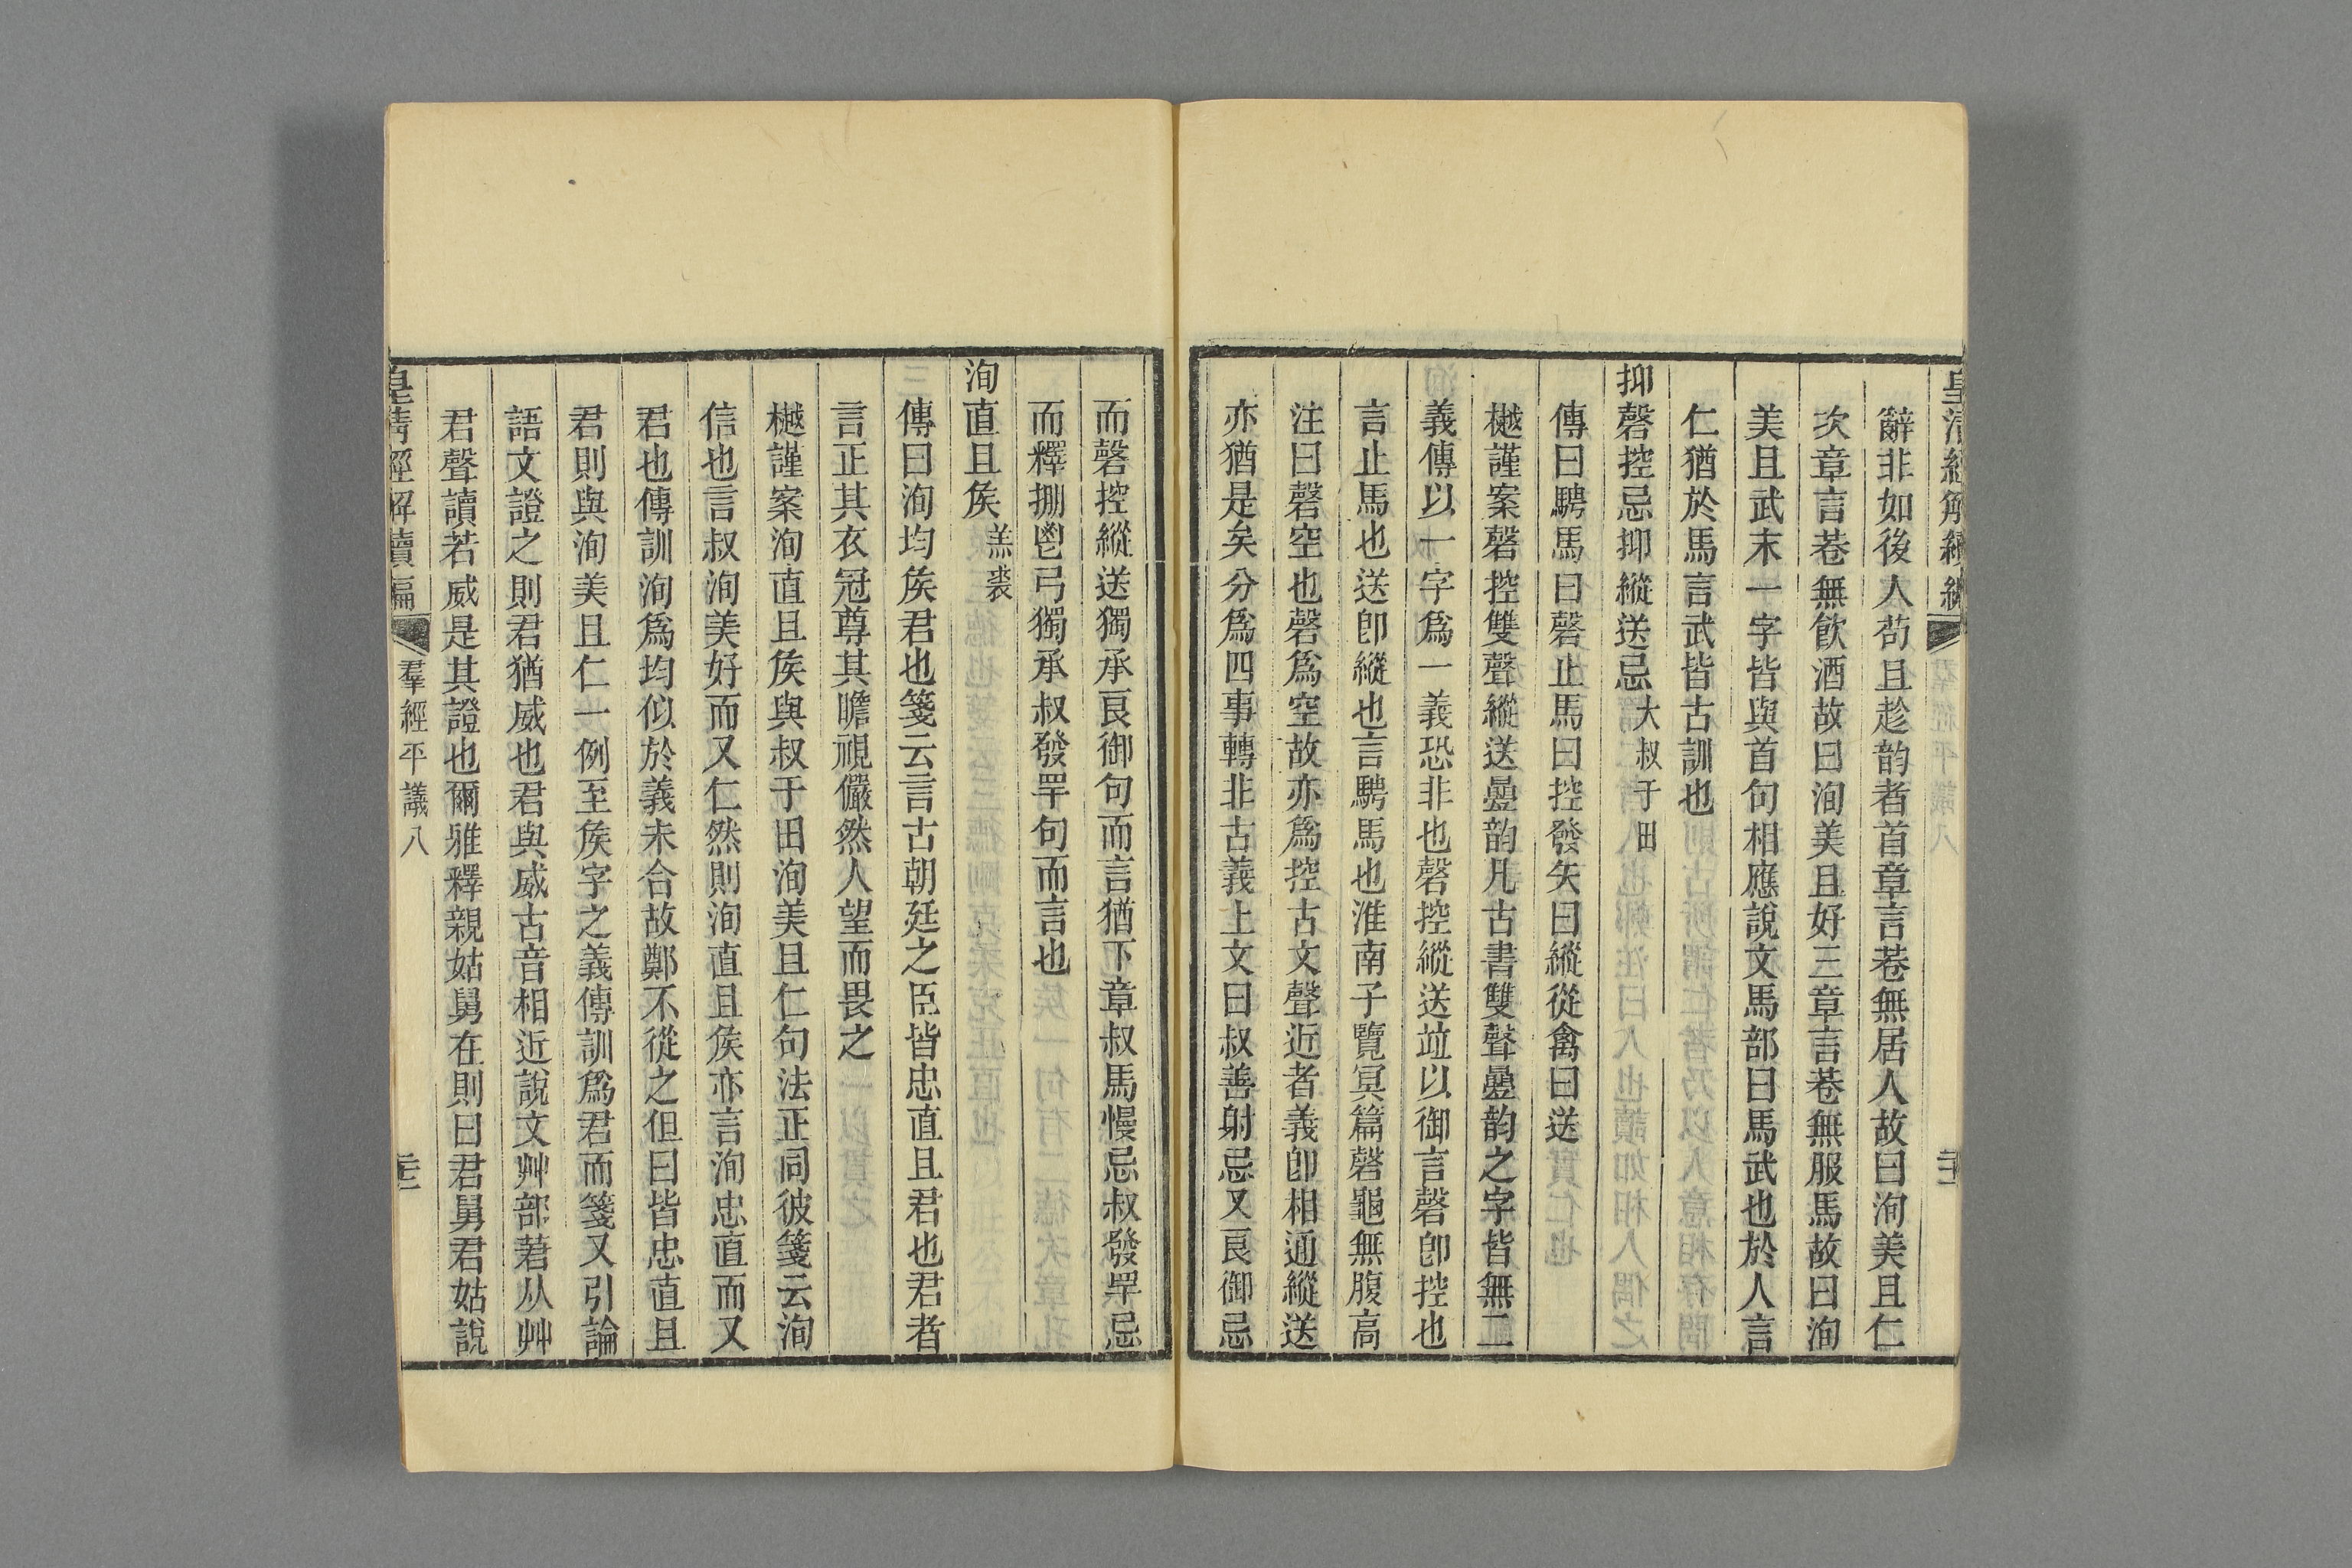 辭非如後人苟且趁韵者首章言巷無居人故曰洵美且仁
次章言巷無飮酒故曰洵美且好三章言巷無服馬故曰洵
美且武末一字皆與首句相應說文馬部曰馬武也於人言
仁猶於馬言武皆古訓也
抑磬控忌抑縱送忌大叔于田
傳曰騁馬曰磬止馬曰控發矢曰縱從禽曰送
樾謹案磬控雙聲縱送曡韵凡古書雙聲曡韵之字皆無二
義傳以一字爲一義恐非也磬控縱送竝以御言磬卽控也
言止馬也送卽縱也言騁馬也淮南子覽冥篇磬龜無腹高
注曰磬空也磬爲空故亦爲控古文聲近者義卽相通縱送
亦猶是矣分爲四事轉非古義上文曰叔善射忌又良御忌
而磬控縱送獨承良御句而言猶下章叔馬慢忌叔發罕忌
而釋掤鬯弓獨承叔發罕句而言也
洵直且矦羔裘
傳曰洵均矦君也箋云言古朝廷之臣皆忠直且君也君者
言正其衣冠尊其瞻視儼然人望而畏之
樾謹案洵直且矦與叔于田洵美且仁句法正同彼箋云洵
信也言叔洵美好而又仁然則洵直且矦亦言洵忠直而又
君也傳訓洵爲均似於義未合故鄭不從之但曰皆忠直且
君則與洵美且仁一例至矦字之義傳訓爲君而箋又引論
語文證之則君猶威也君與威古音相近說文艸部莙从艸
君聲讀若威是其證也爾雅釋親姑舅在則曰君舅君姑說
皇淸經解續編
羣經平議八